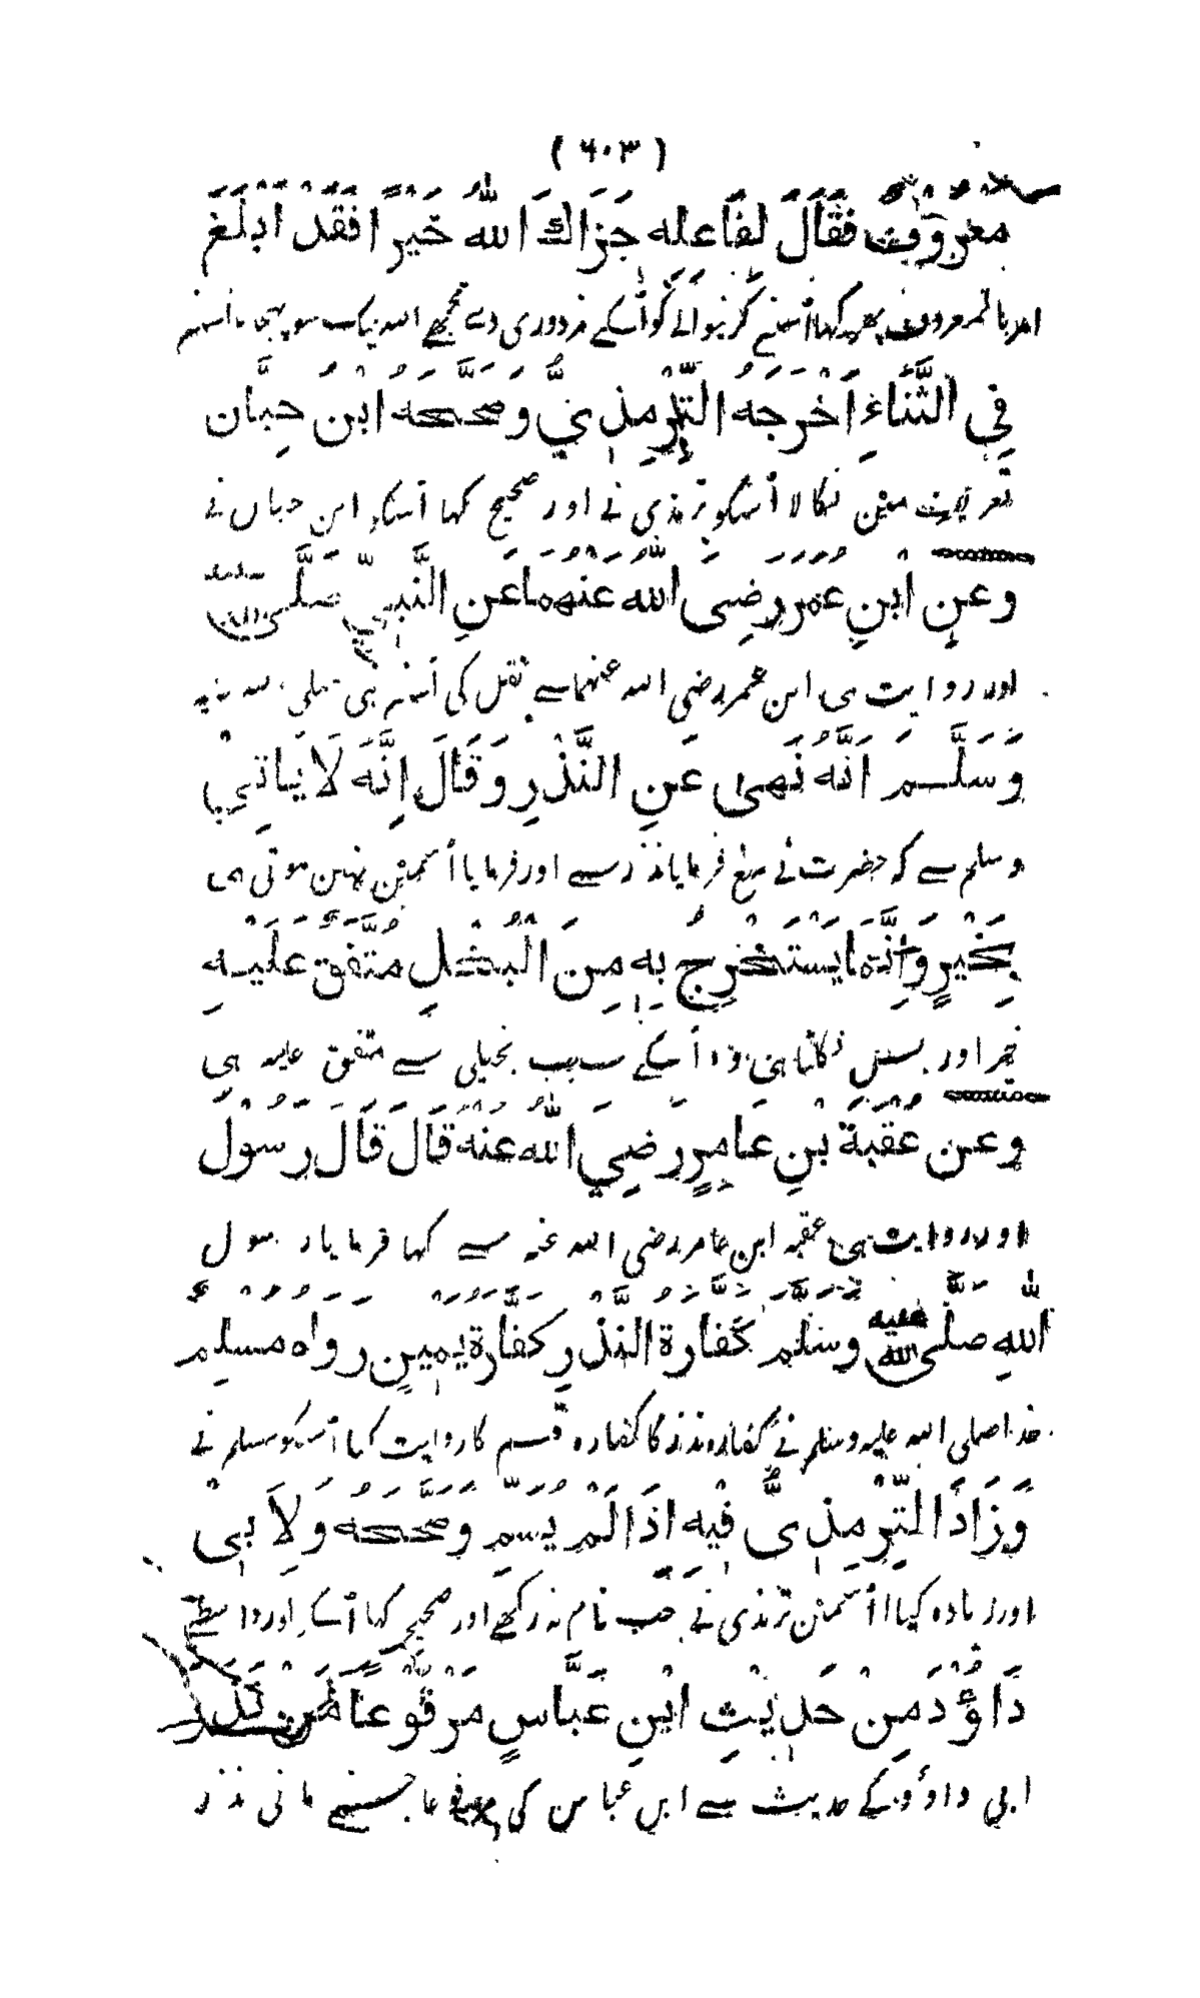 (٦٠٣)
مَعْرُوْفٌ فَقَالَ لِفَاعِلِهٖ جَزَاكَ اللّٰهُ خَيْرًا فَقَدْ اَبْلَغَ
امر بالمعروف پھر کہا اُسنے کرنیوالے کو اُسکے مزدوری دے تجھے اللہ نیک سو پہنچا
فِي الثَّنَاءِ اَخْرَجَهُ التِّرْمِذِيُّ وَصَحَّحَهُ ابْنُ حِبَّان
تعریف مین نکالا اُسکو ترمذی نے اور صحیح کہا اُسکو ابن حبان نے
وَعَنِ ابْنِ عُمَرَ رَضِىَ اللّٰهُ عَنْهُمَا عَنِ النَّبِيِّ صَلَّى اللّٰهُ عَلَيْهِ
اور روایت ہی ابن عمر رضی اللہ عنہما سے نقل کی اُسنے نبی صلی اللہ علیہ
وَسَلَّمَ اَنَّهُ نَهٰى عَنِ النَّذْرِ وَقَالَ اِنَّهُ لَا يَاتِيْ
وسلم سے کہ حضرت نے منع فرمایا نذر سے اور فرمایا اُسمین نہین ہوتی ہی
بِخَيْرٍ وَاِنَّمَا يُسْتَخْرَجُ بِهٖ مِنَ الْبُخْلِ مُتَّفَقٌ عَلَيْهِ
خیر اور بس نکلتا ہی وہ اُسکے سبب بخیلی سے متفق علیہ ہی
وَعَنْ عُقْبَةَ بْنِ عَامِرٍ رَضِيَ اللّٰهُ عَنْهُ قَالَ قَالَ رَسُوْلُ
اور روایت ہی عقبہ ابن عامر رضی اللہ عنہ سے کہا فرمایا رسول
اللّٰهِ صَلَّى اللّٰهُ عَلَيْهِ وَسَلَّمَ كَفَّارَةُ النَّذْرِ كَفَّارَةُ يَمِيْنٍ رَوَاهُ مُسْلِمٌ
خدا صلی اللہ علیہ وسلم نے کفارہ نذر کا کفارہ قسم کا روایت کیا اُسکو مسلم نے
وَزَادَ التِّرْمِذِىُّ فِيْهِ اِذَا لَمْ يُسَمِّ وَصَحَّحَهُ وَلِاَبِىْ
اور زیادہ کیا اُسمین ترمذی نے جب نام نہ رکھے اور صحیح کہا اُسکو اور واسطے
دَاوٗدَ مِنْ حَدِيْثِ ابْنِ عَبَّاسٍ مَرْفُوْعًا مَنْ نَذَرَ
ابی داؤد کے حدیث سے ابن عباس کی مرفوعا جسنے مانی نذر